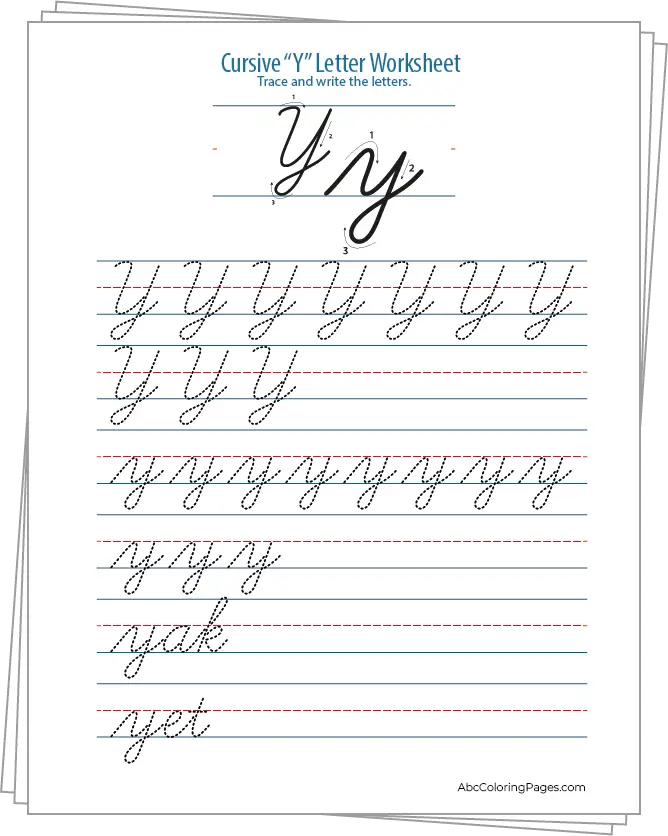 Cursive “Y” Letter Worksheet
Trace and write the letters.
1 1
Y y
2 2
3 3
Y Y Y Y Y Y Y
Y Y Y
y y y y y y y y
y y y
yak
yet
AbcColoringPages.com